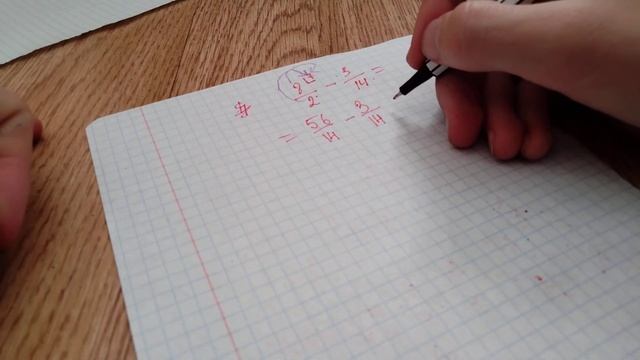 # 8/2 - 3/14 =
= 56/14 - 3/14